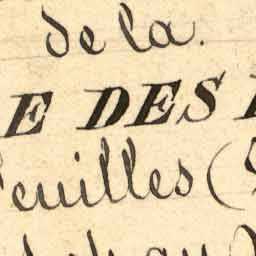 de la.
E DES
euilles (